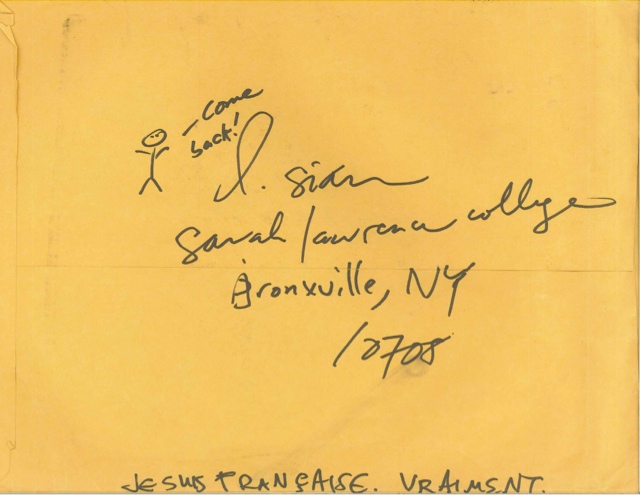 - come
back!
I. Sian
Sarah lawrence college
Bronxville, NY
10708
JESUS FRANÇAISE. VRAIMENT.